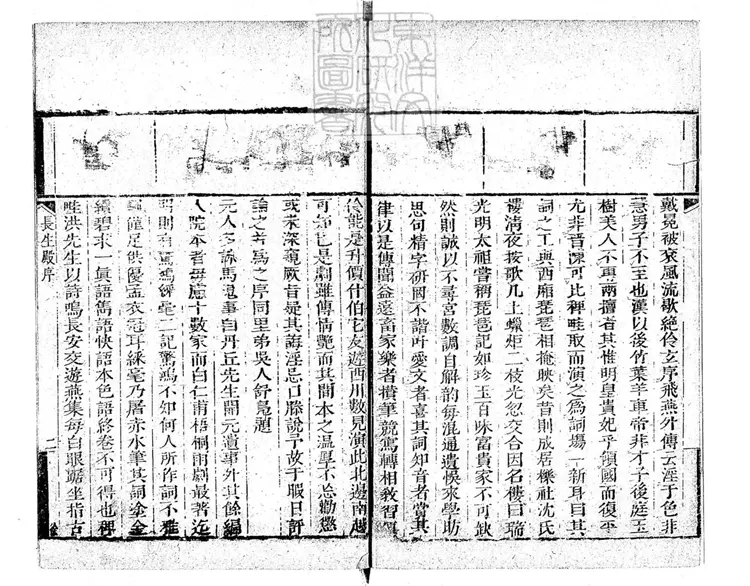 戴冕被袞風流歇絕伶玄序飛燕外傳云淫于色非
慧男子不至也漢以後竹葉羊車帝非才子後庭玉
樹美人不專兩擅者其惟明皇貴妃乎傾國而復平
尤非晉陳可比稗畦取而演之爲詞塲一新耳目其
詞之工與西廂琵琶相掩映矣昔則成居櫟社沈氏
樓清夜按歌几上蠟炬二枝光忽交合因名樓曰瑞
光明太祖嘗稱琵琶記如珍玉百味富貴家不可缺
然則誠以不尋宮數調自解韵每混通遺悞來學助
思句精字研罔不諧叶愛文者喜其詞知音者賞其
律以是傳聞益遠畜家樂者攅筆競寫轉相敎習
伶能是升價什伯它友遊西川數見演此北邊南越
可知已是劇雖傳情艷而其間本之溫厚不忘勸懲
或未深窺厥旨疑其誨淫忌口滕說予故于暇日評
論之者爲之序同里弟吳人舒鳧題
元人多詠馬嵬事自丹丘先生開元遺事外其餘編
入院本者毋慮十數家而白仁甫梧桐雨劇最著迄
明則有驚鴻綵毫二記驚鴻不知何人所作詞不雅
馴僅足供優孟衣冠耳綵毫乃屠赤水筆其詞塗金
繢碧求一眞語雋語快語本色語終卷不可得也稗
畦洪先生以詩鳴長安交遊燕集每白眼踞坐指古
長生殿序
二